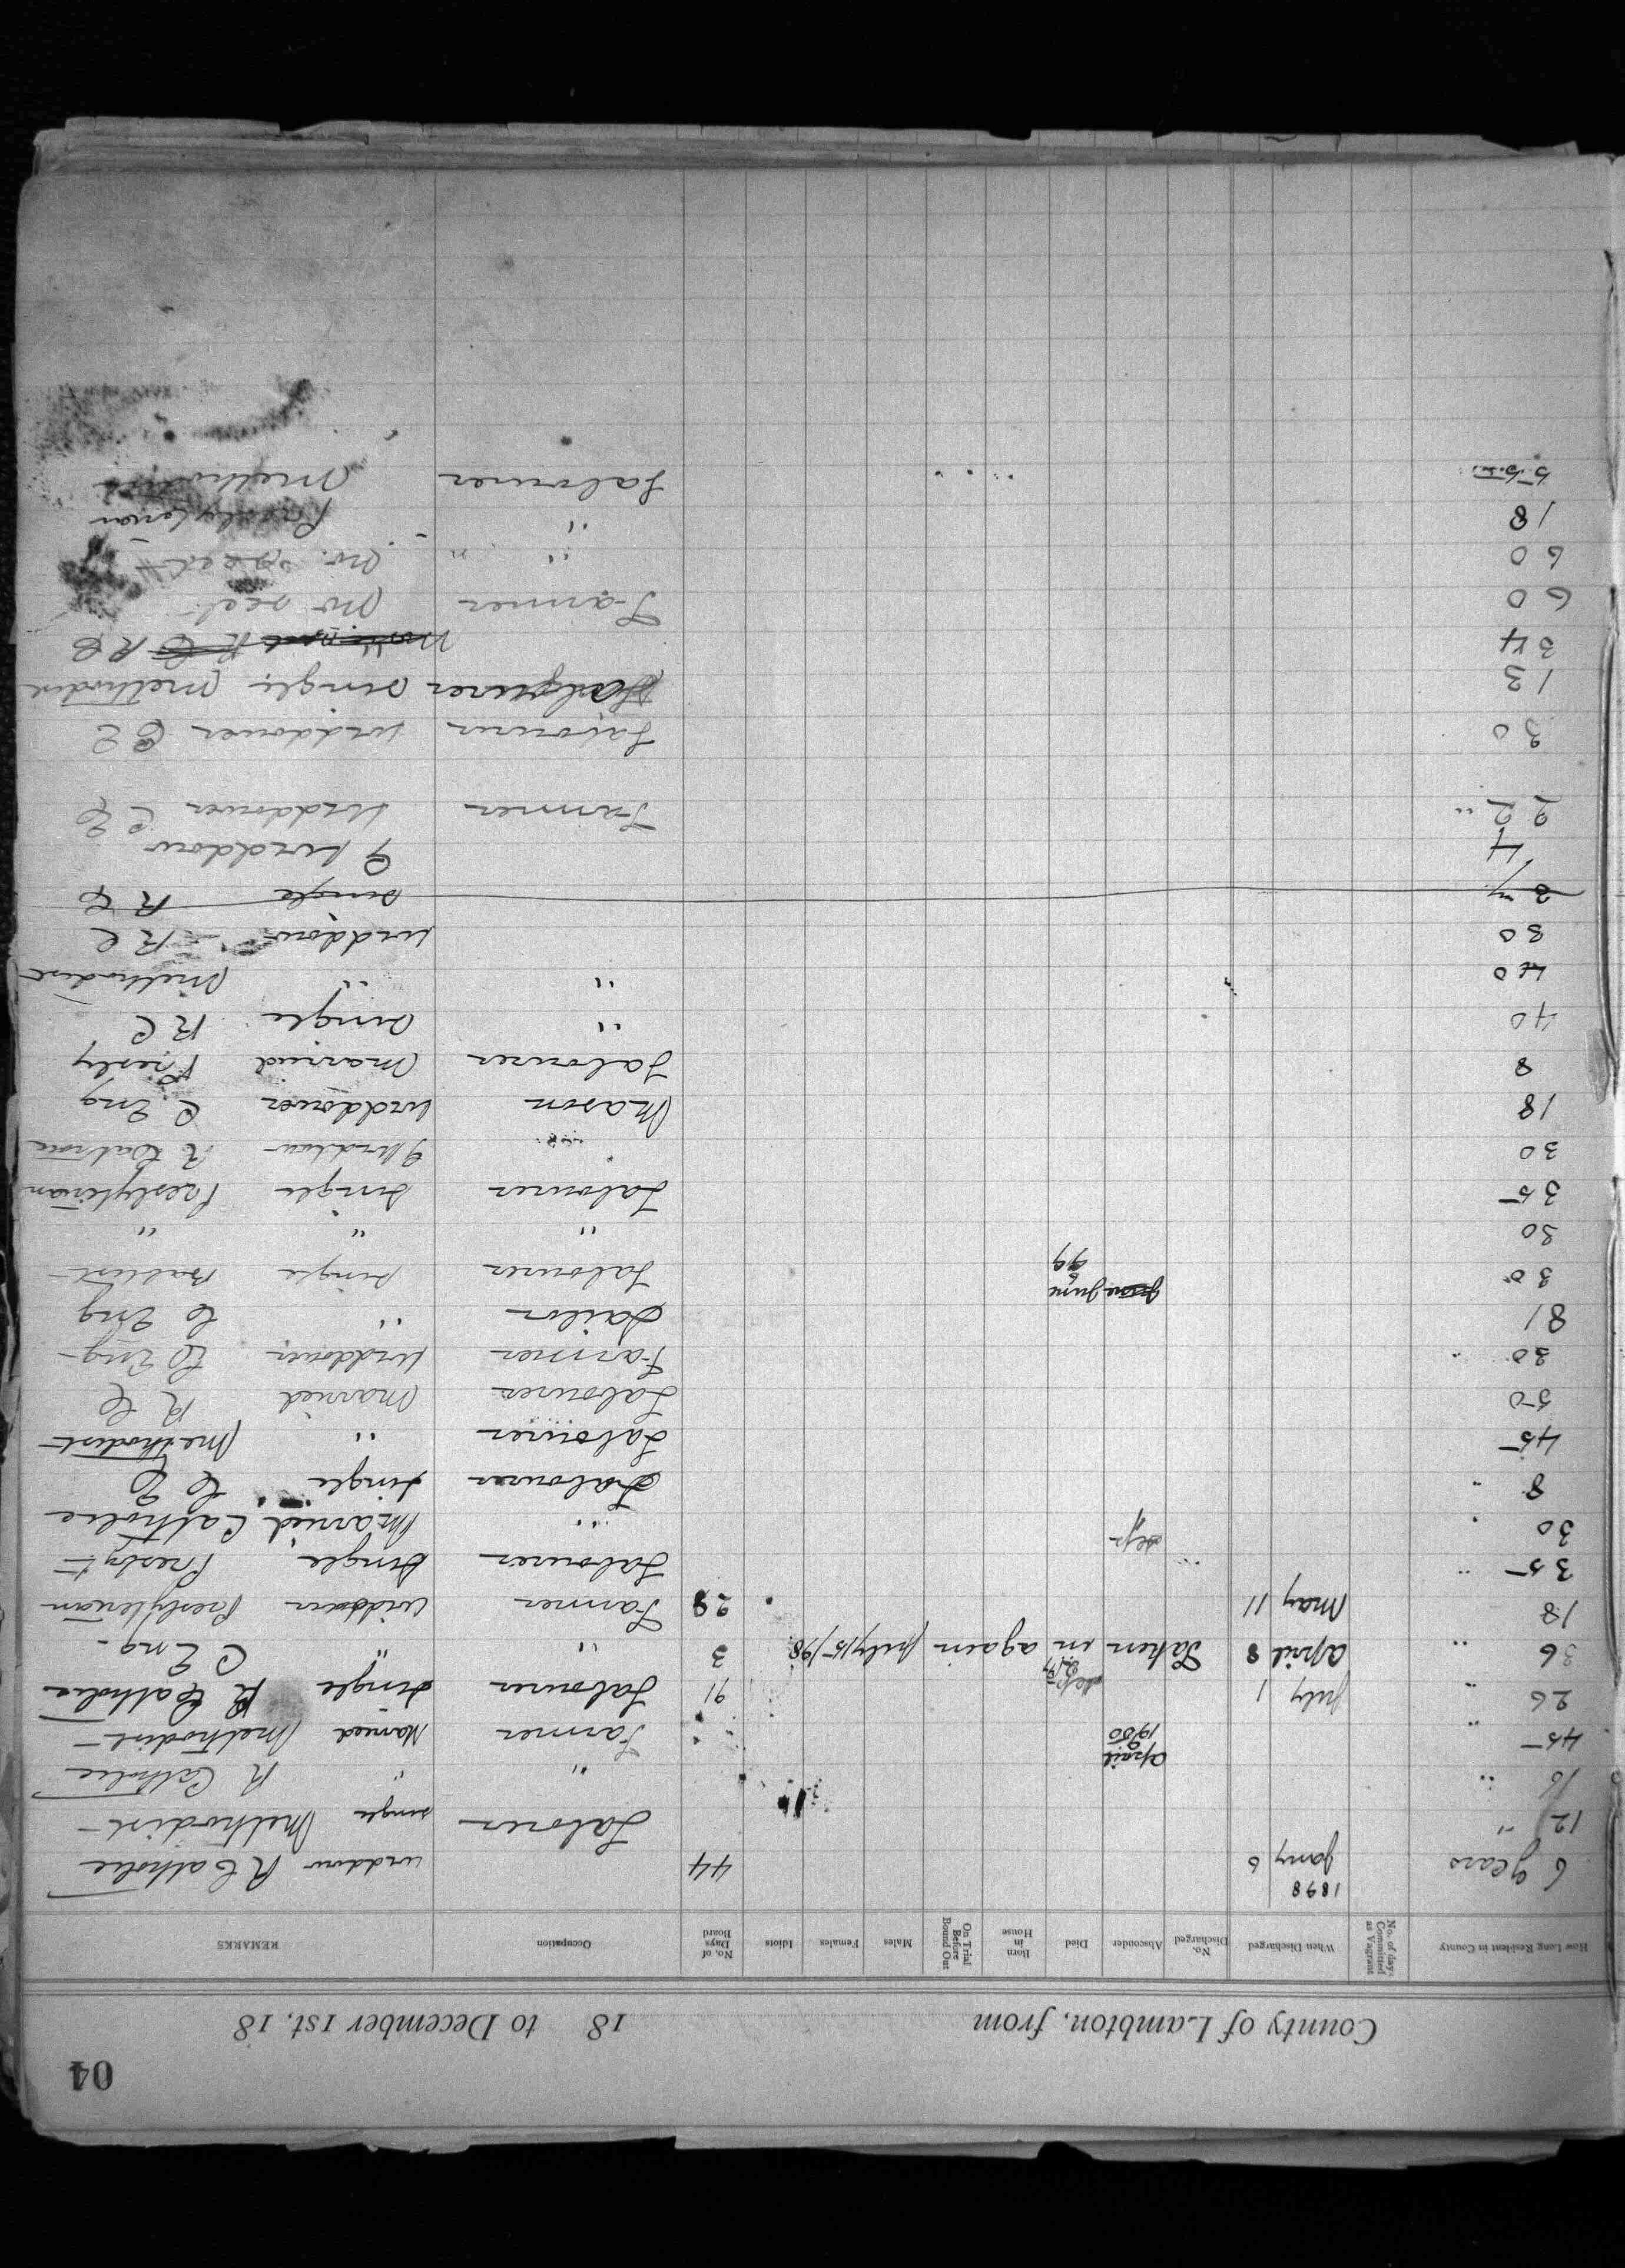 04
County of Lambton, from 18 to December 1st, 18
How Long Resident in County | No. of days Committed as Vagrant | When Discharged | No. Discharged | Absconder | Died | Born in House | On Trial Before Bound Out | Males | Females | Idiots | No. of Days Board | Occupation | REMARKS
1898
6 years Jany 6 44 widow R Catholic
12 " Laborer single Methodist
16 " " " R Catholic
45 April 9 1900 Farmer Married Methodist
26 " July 1 91 Labourer single R Catholic
36 " April 8 Taken in again July 15/98 3 " " C Eng
18 May 11 28 Farmer widow Presbyterian
35 " Labourer Single Presbyt
30 " Sep " Married Catholic
8 " Labourer single C E
45 Labourer " Methodist
50 Labourer Married R C
30 " Farmer widdower C Eng
81 Sailor " C Eng
30 June 6 99 Labourer single Baptist
30 " " "
35 Labourer single Presbyterian
30 widow R Catholic
18 Mason widdower C. Eng
8 Labourer married Presby
40 " single R C
40 " " Methodist
30 widdow R C
2 m single R C
4 widdow
22 " Farmer widdower C E
30 Labourer widdower C E
13 Labourer single Methodist
34 R C
60 Farmer No sect
60 " No sect
18 " Presbyterian
5 Labourer Methodist